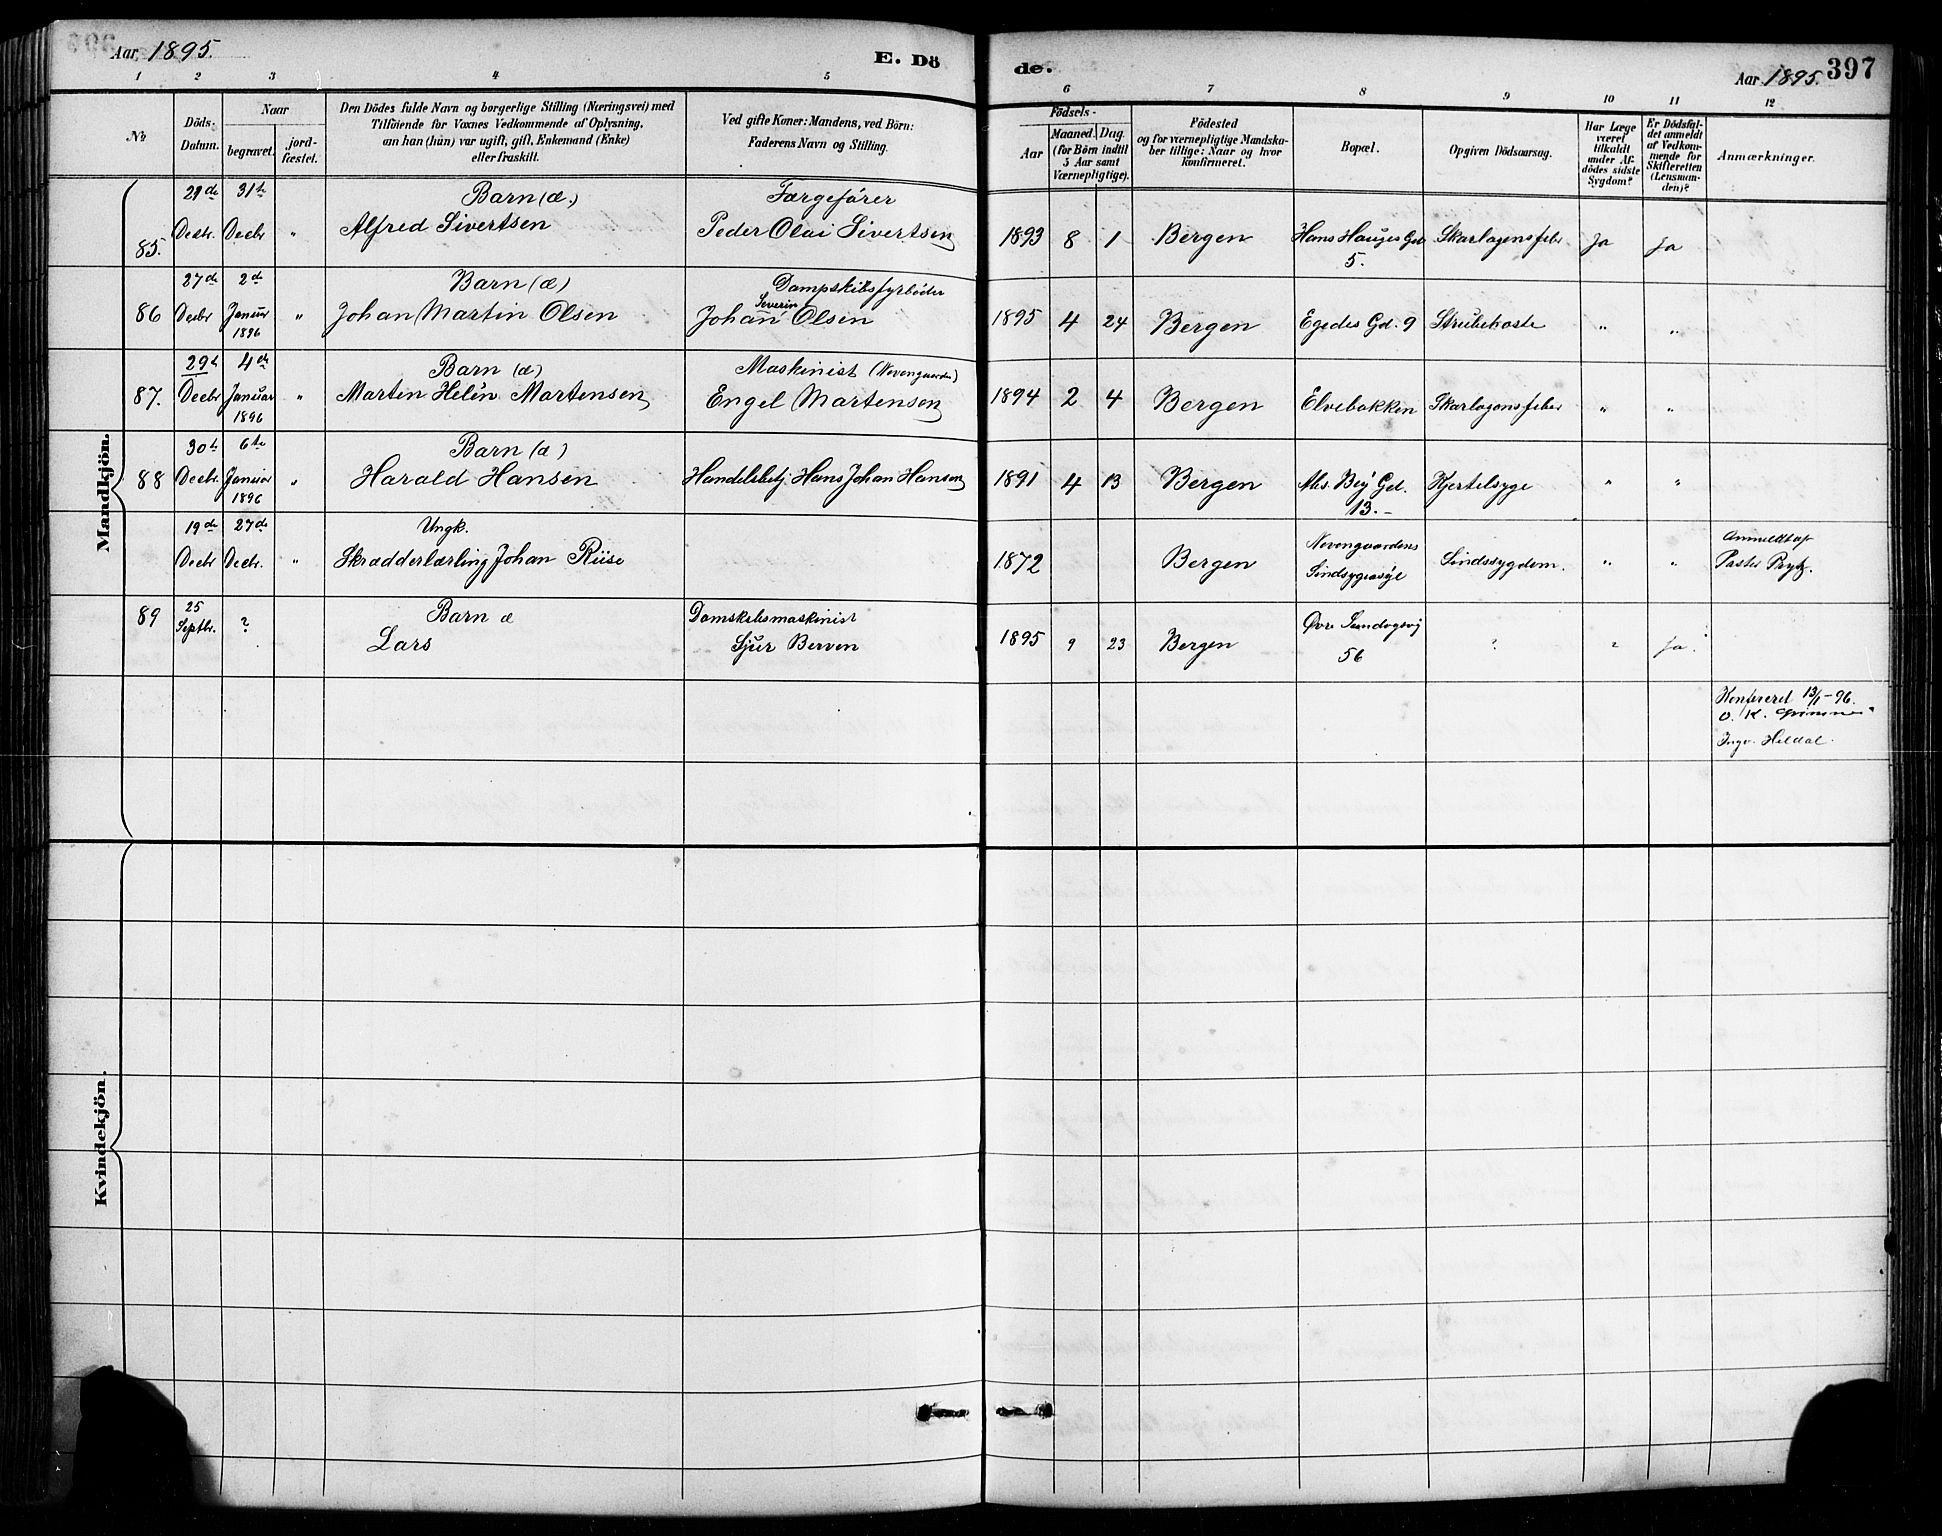 Aar 1895.
E. Dö
de.
Aar 1895.
397
1 2 3 4 5 6 7 8 9 10 11 12
№
Döds-
Datum.
Naar
begravet.
jord-
fæstet.
Den Dödes fulde Navn og borgerlige Stilling (Næringsvei) med
Tilföiende for Voxnes Vedkommende af Oplysning,
om han (hun) var ugift, gift, Enkemand (Enke)
eller fraskilt.
Ved gifte Koner: Mandens, ved Börn:
Faderens Navn og Stilling.
Födsels-
Aar
Maaned.
Dag.
(for Börn indtil
5 Aar samt
Værnepligtige).
Födested
og for værnepligtige Mandska-
ber tillige: Naar og hvor
konfirmeret.
Bopæl.
Opgiven Dödsaarsag.
Har Læge
været
tilkaldt
under Af-
dödes sidste
Sygdom?
Er Dödsfal-
det anmeldt
af Vedkom-
mende for
Skifteretten
(Lensman-
den)?
Anmærkninger.
Mandkjön.
85.
Decbr.
31te
Decbr
"
Barn (æ.)
Alfred Sivertsen
Færgefører
Peder Olai Sivertsen
1893 8 1
Bergen
Hans Hauges Gd
5.
Skarlagensfeber
Ja
Ja
86
27de
Decbr
2de
Januar
1896
"
Barn (æ)
Johan Martin Olsen
Dampskibsfyrböder
Severin
Johan Olsen
1895 4 24
Bergen
Egedes Gd. 9
Strubehoste
"
"
87.
29de
Decbr
4de
Januar
1896
"
Barn (æ)
Marten Helén Martensen
Maskinist (Nevengaarden)
Engel Martensen
1894 2 4
Bergen
Elvebakken
Skarlagensfeber
"
"
88
30te
Decbr.
6te
Januar
1896
"
Barn (æ)
Harald Hansen
Handelsbetj Hans Johan Hansen
1891 4 13
Bergen
Gd.
13.-
Kjertelsyge
"
"
19de
Decbr
27de
Decbr.
"
Ungk.
Skrædderlærling Johan Riise
1872
Bergen
Nevengaardens
Sindsygeasyl
Sindssygdom.
"
"
Anmeldt af
Pastor Prytz.
89
25
Septbr.
?
Barn æ
Lars
Damskibsmaskinist
Sjur Berven
1895 9 23
Bergen
Øvre
56
?
?
Ja.
Konfereret 13/1-96.
O. K.
Ingv. Heldal.
Kvindekjön.